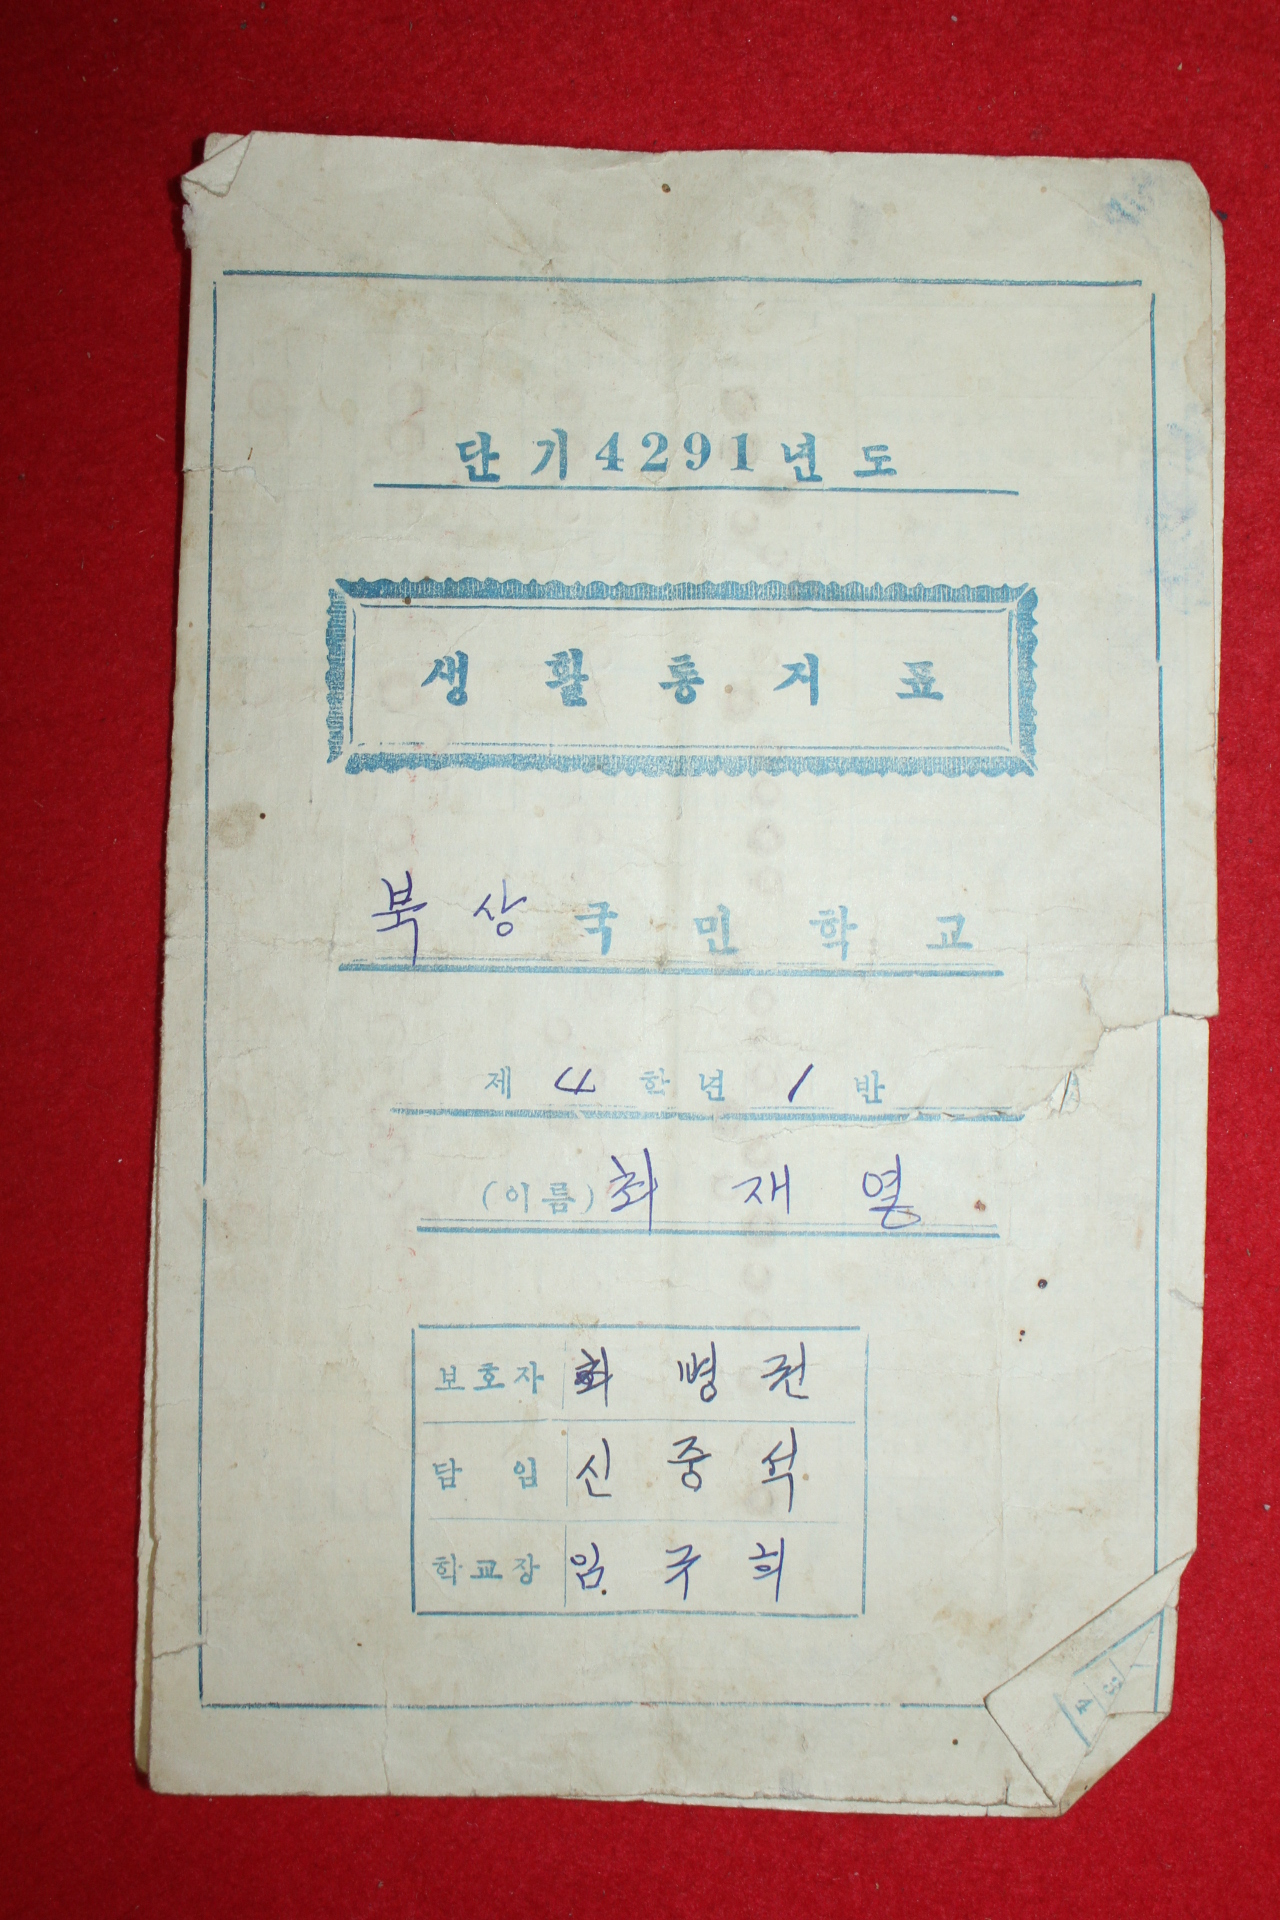 단기4291년도
생활통지표
북상국민학교
제 4 학년 1 반
(이름) 최재열
보호자 최병권
담임 신중석
학교장 임구희
3
4